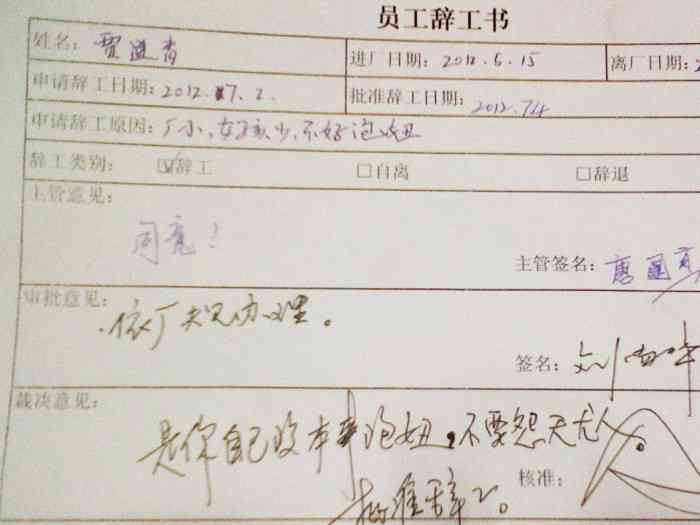 员工辞工书
姓名：贾进青 进厂日期：2012.6.15 离厂日期：2
申请辞工日期：2012.7.2. 批准辞工日期：2012.7.4
申请辞工原因：厂小，女孩少，不好泡妞
辞工类别： ☑辞工 □自离 □辞退
主管意见：
同意！
主管签名：
审批意见：
依厂规办理。
签名：刘
裁决意见：
是你自己没本事泡妞，不要怨天尤人。
核准：
批准辞工。